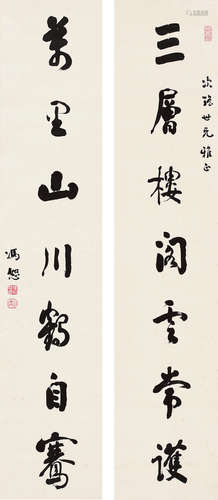 三層樓閣雲常護
次珊世兄雅正
萬里山川鶴自騫
馮恕